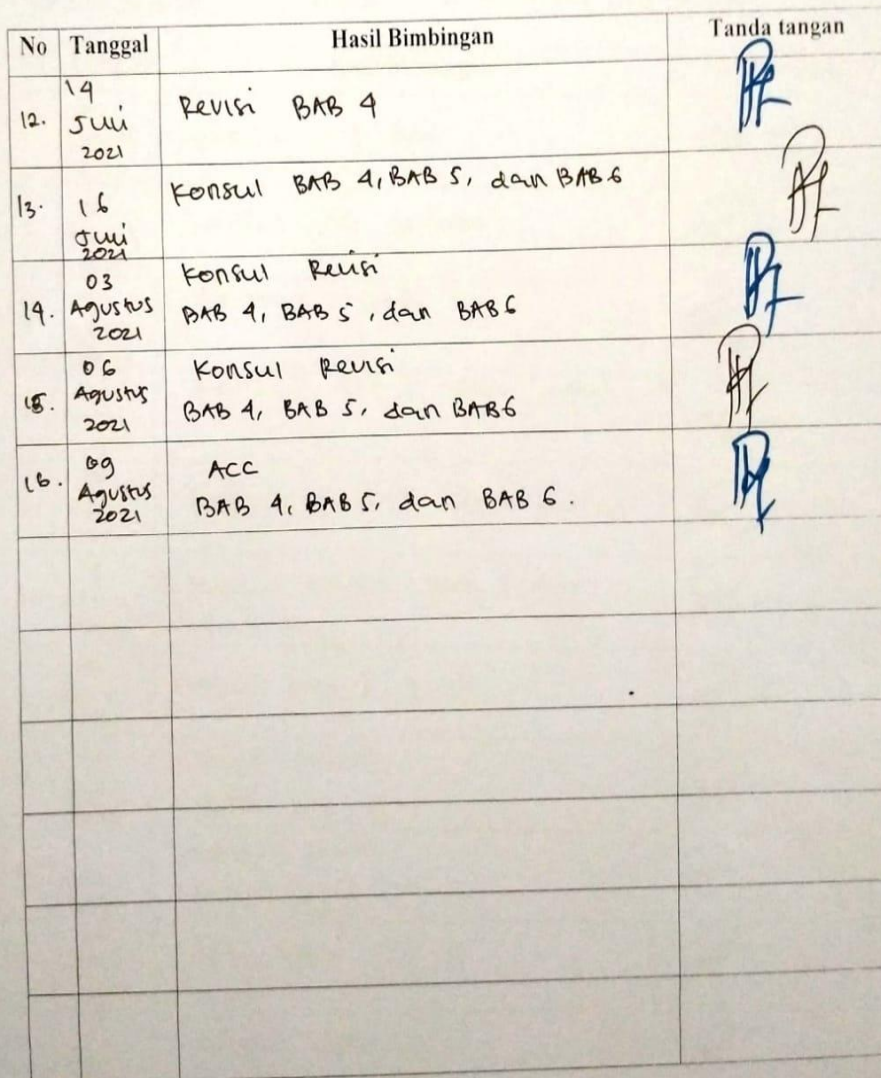 No Tanggal Hasil Bimbingan Tanda tangan
12. 14 Juli 2021 Revisi BAB 4
13. 16 Juli 2021 Konsul BAB 4, BAB 5, dan BAB 6
14. 03 Agustus 2021 Konsul Revisi
BAB 4, BAB 5, dan BAB 6
15. 06 Agustus 2021 Konsul Revisi
BAB 4, BAB 5, dan BAB 6
16. 09 Agustus 2021 ACC
BAB 4, BAB 5, dan BAB 6.